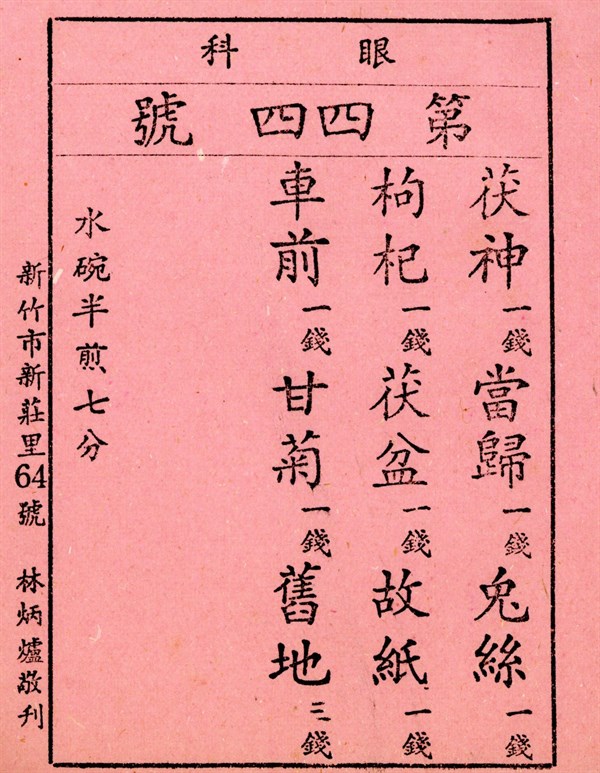 眼科
第四四號
茯神一錢當歸一錢兔絲一錢
枸杞一錢茯盆一錢故紙一錢
車前一錢甘菊一錢舊地三錢
水碗半煎七分
新竹市新莊里64號 林炳爐敬刊